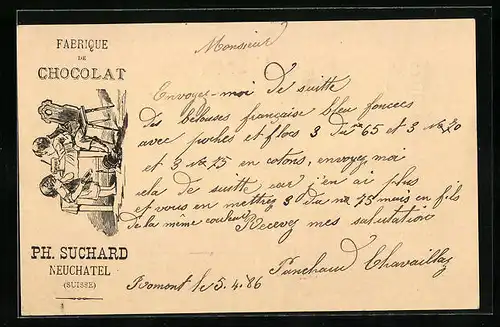 FABRIQUE
DE
CHOCOLAT
PH. SUCHARD
NEUCHATEL
(SUISSE)
Monsieur
Envoyez-moi De suitte
des belouses française bleu foncees
avec poches et flocs 3 Du No 65 et 3 No 70
et 3 No 75 en cotons, envoyez moi
cela de suitte car j'en ai plus
et vous en mettrez 3 du No 75 mais en fils
de la même couleur Recevez mes salutation
Panchaud Chavaillaz
Romont le 5.4.86